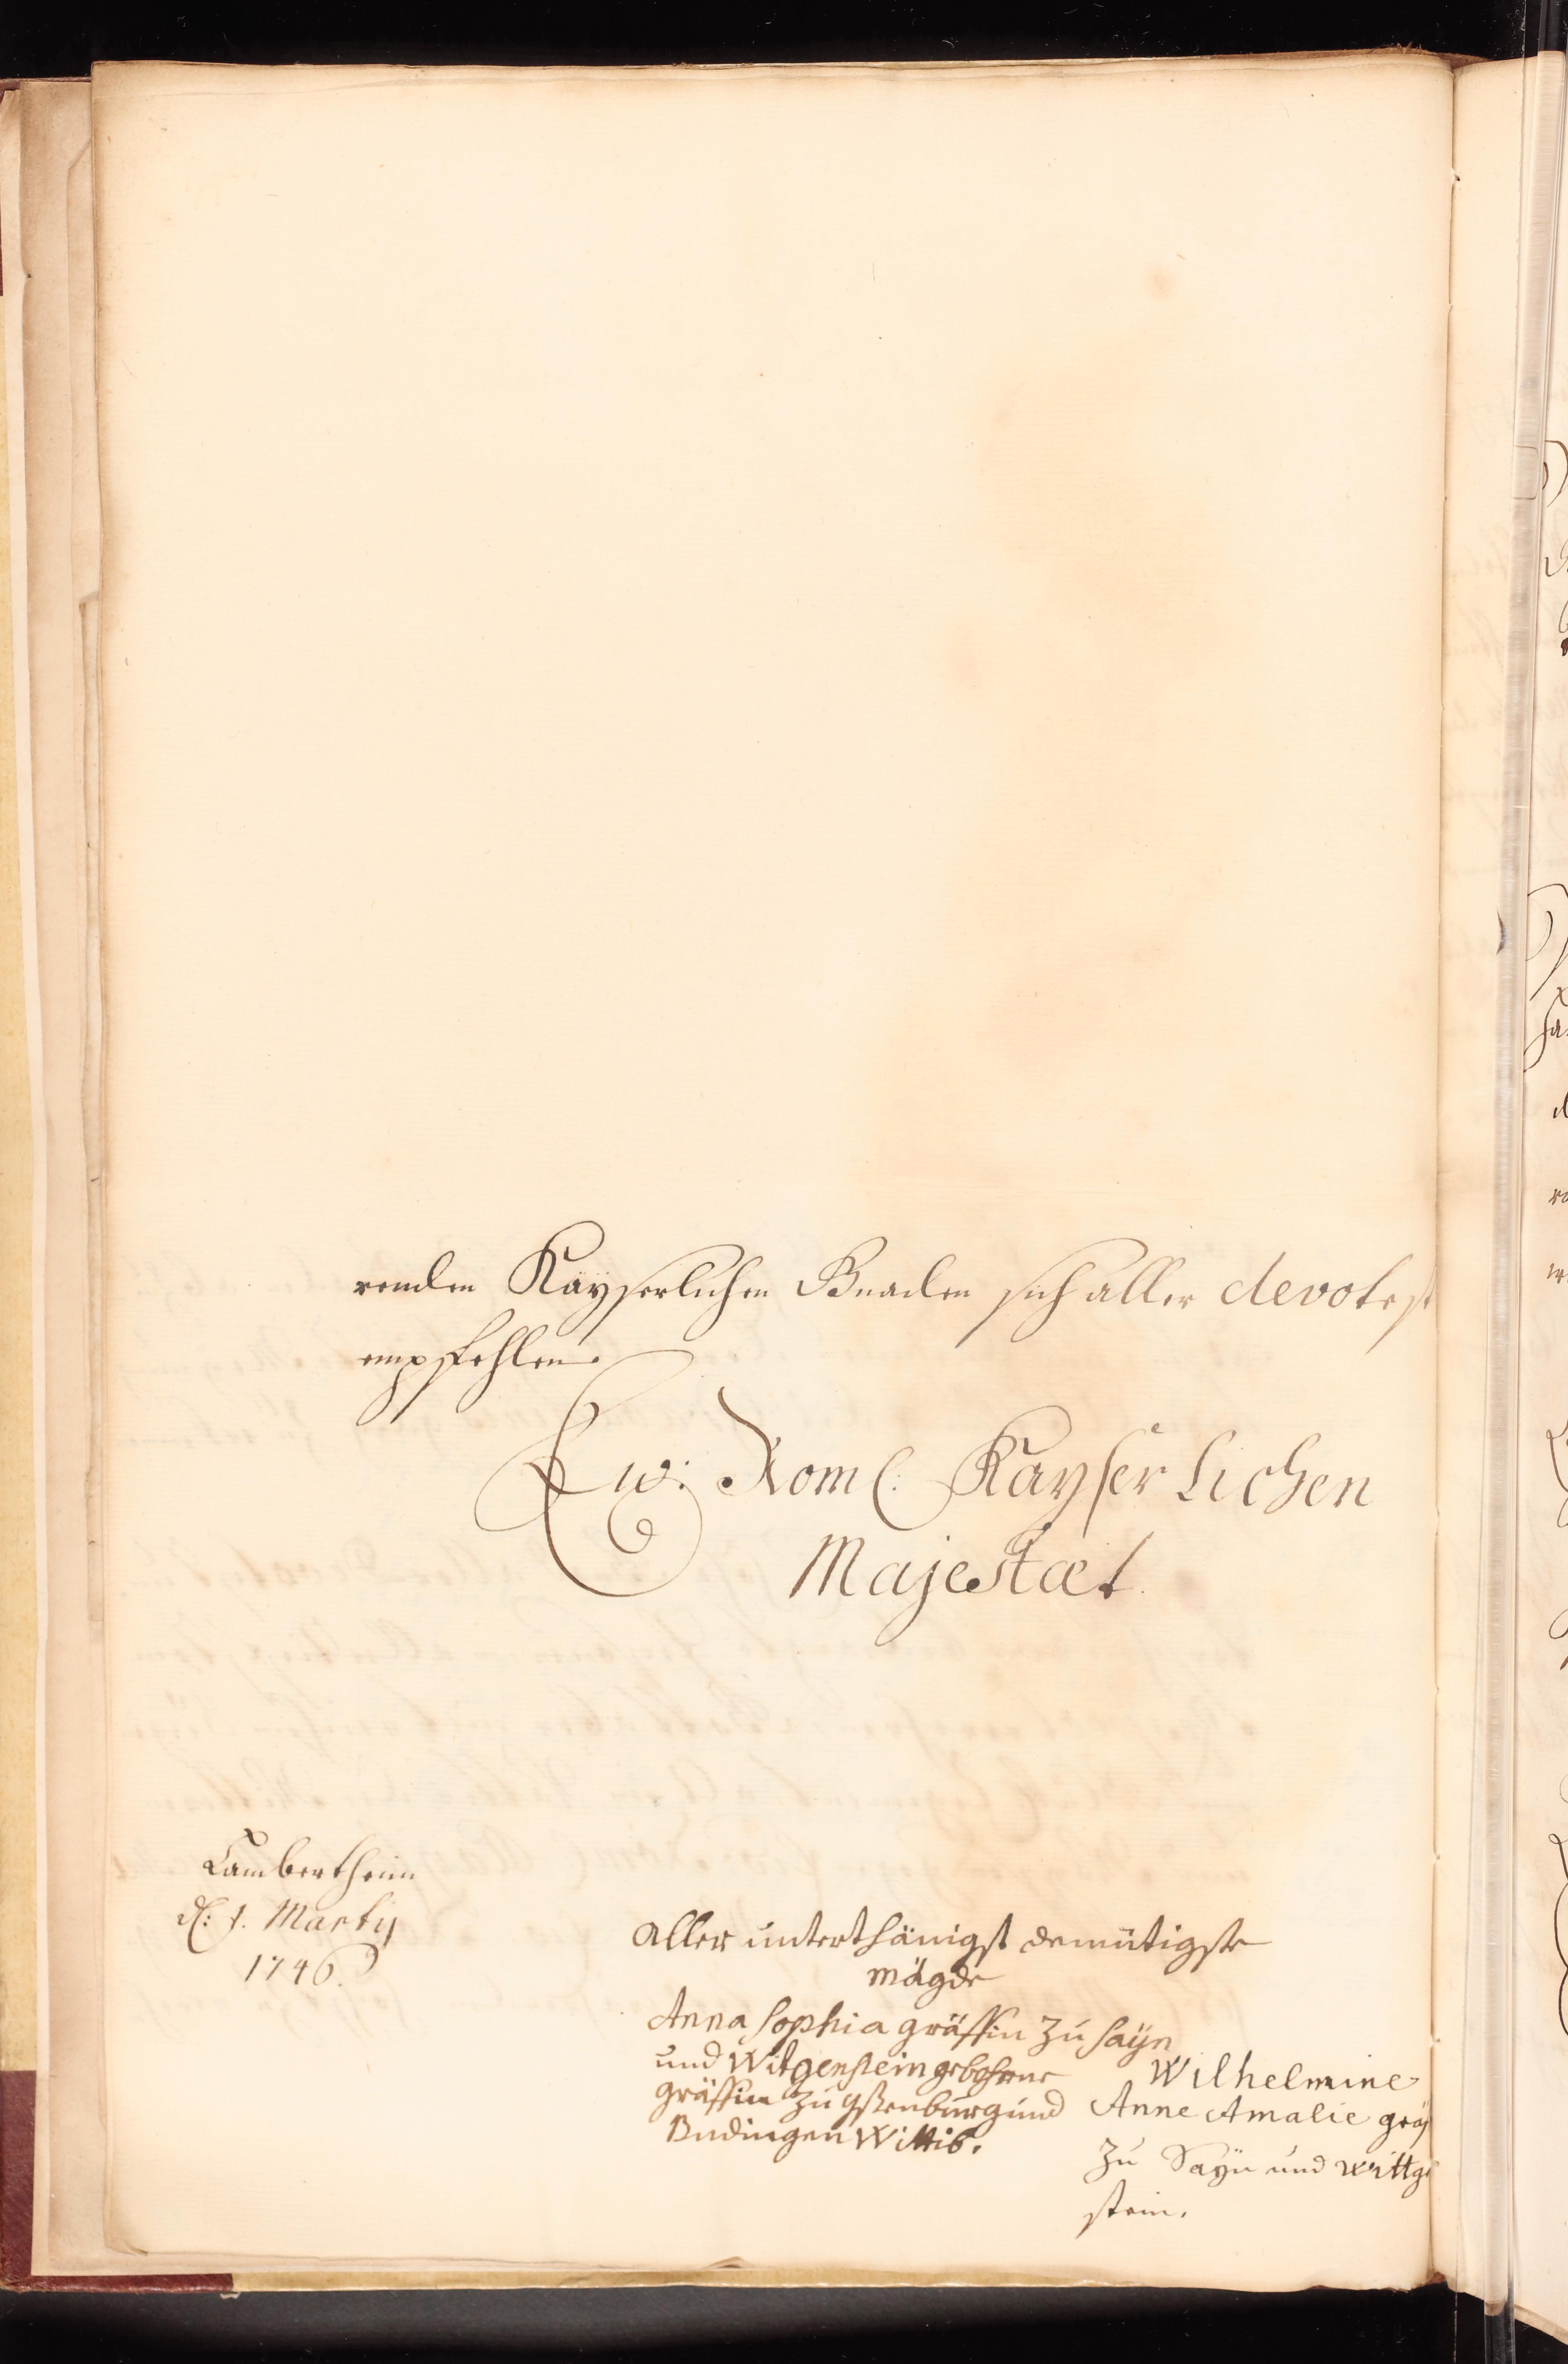 renden Kayserlichen Gnaden sich aller devotest
empfehlen.
Ew: Röm(: Kayserlichen
Majestæt.
Lambertheim
d(: 1. Martij
1746.
aller unterthänigst demütigste
mägde
Anna Sophia gräffin zu Sayn
und Witgenstein gebohrne
gräffin zu Yßenburg und
Budingen Wittib.
Wilhelmine
Anne Amalie gräf
zu Sayn und wittge
stein.